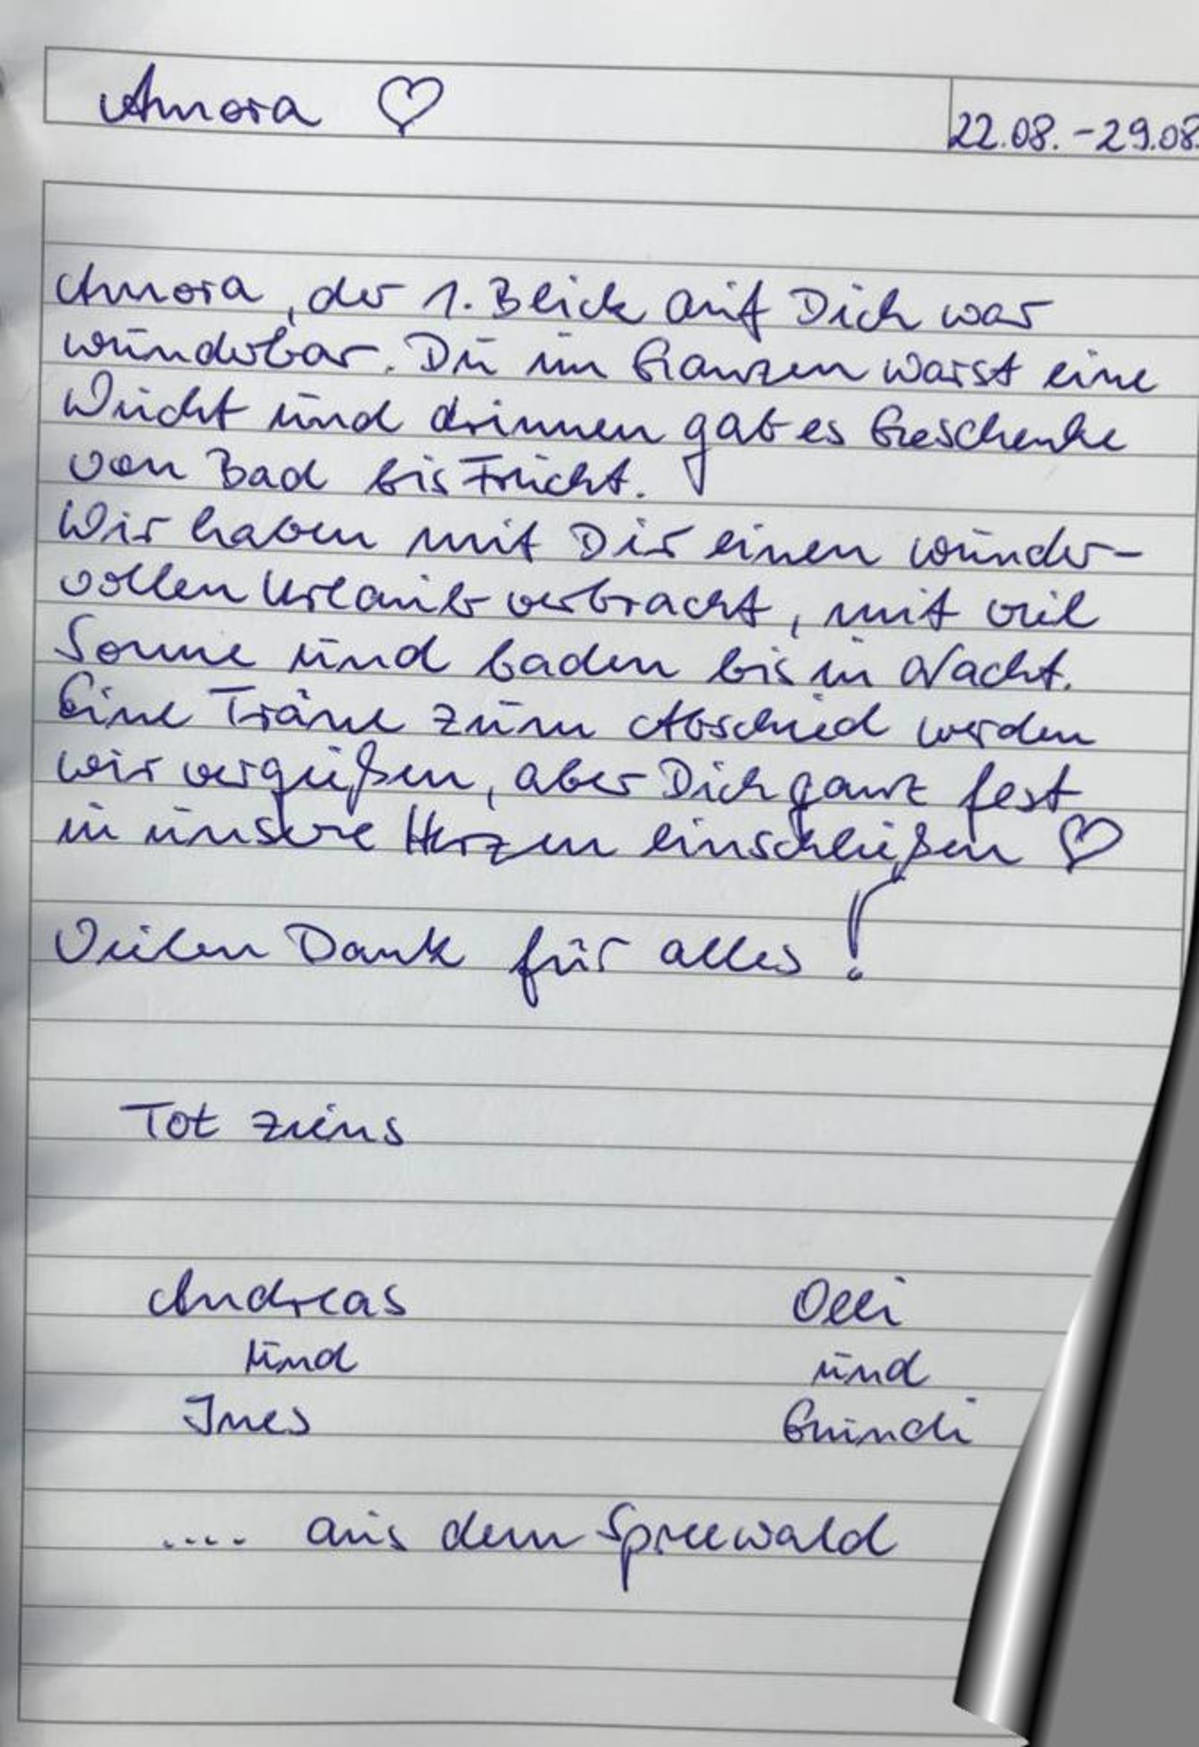 Amora ♡
22.08. - 29.08.
Amora, der 1. Blick auf Dich war
wunderbar. Du im Ganzen warst eine
Wucht und drinnen gab es Geschenke
von Bad bis Frucht.
Wir haben mit Dir einen wunder-
vollen Urlaub verbracht, mit viel
Sonne und baden bis in Nacht.
Eine Träne zum Abschied werden
wir vergießen, aber Dich ganz fest
in unsere Herzen einschließen ♡
Vielen Dank für alles!
Tot ziens
Andreas
und
Ines
Olli
und
.... aus dem Spreewald